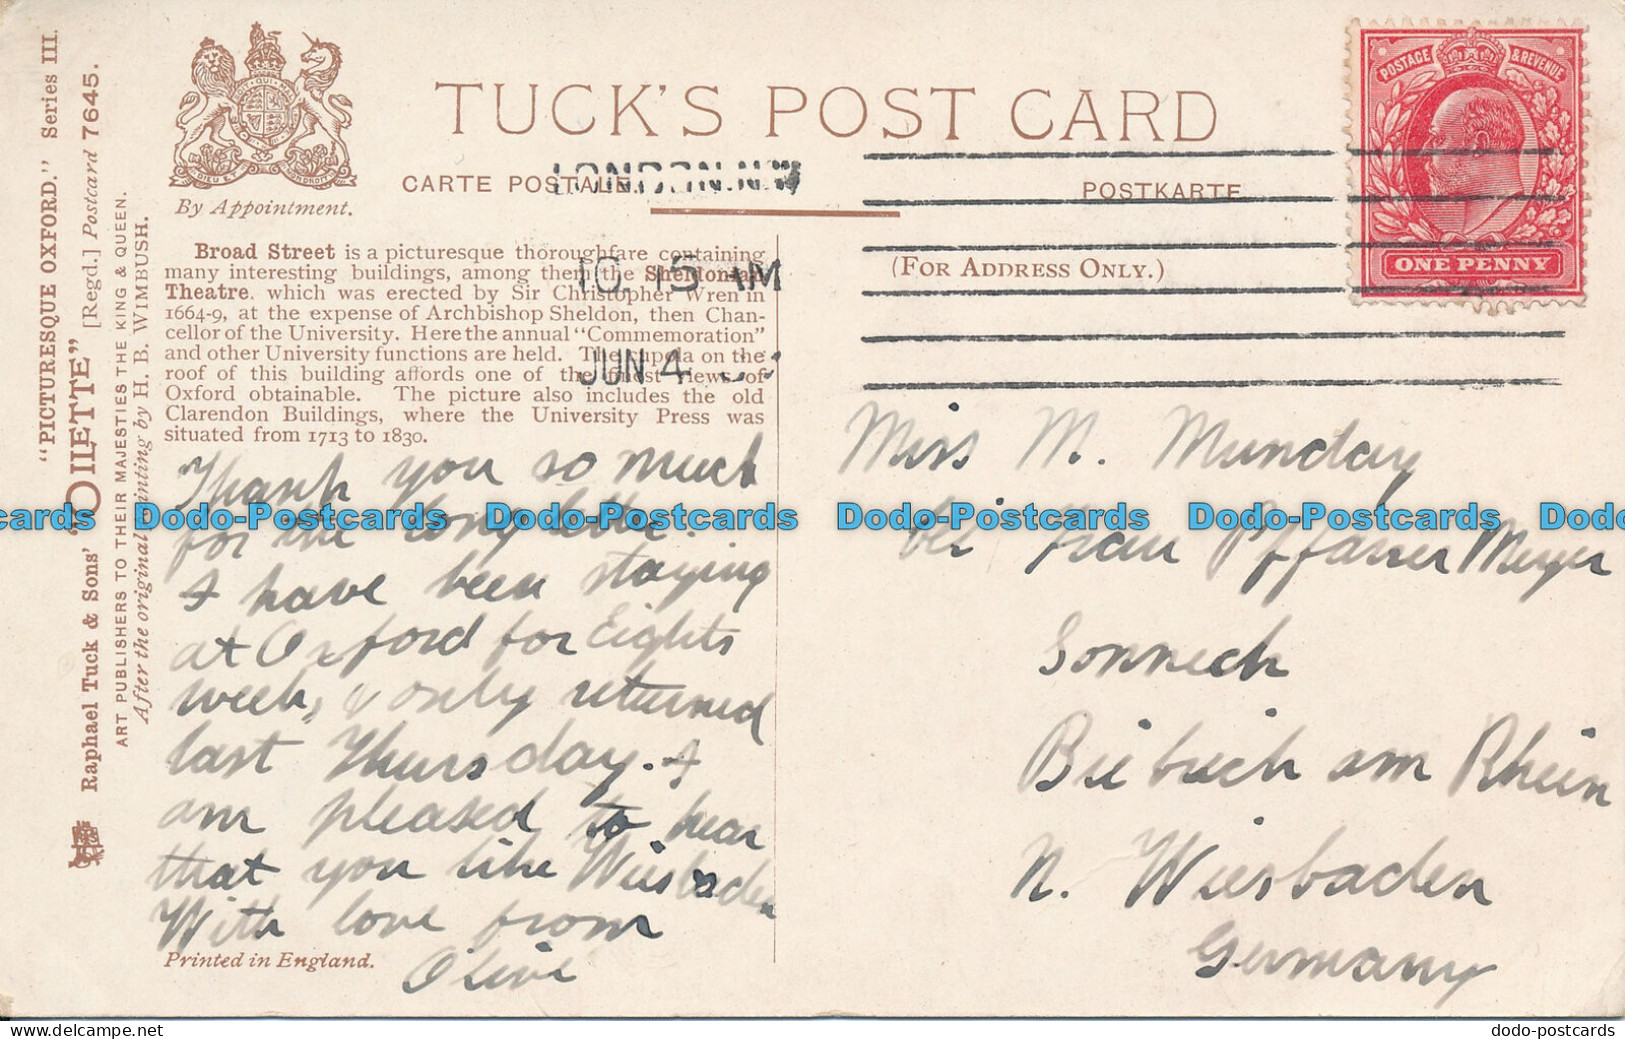 TUCK'S POST CARD
CARTE POSTALE
POSTKARTE
By Appointment.
(FOR ADDRESS ONLY.)
POSTAGE & REVENUE
ONE PENNY
LONDON. N.W
10 15 AM
JUN 4
"PICTURESQUE OXFORD." Series III.
Raphael Tuck & Sons' "OILETTE" [Regd.] Postcard 7645.
ART PUBLISHERS TO THEIR MAJESTIES THE KING & QUEEN.
After the original painting by H. B. WIMBUSH.
Broad Street is a picturesque thoroughfare containing
many interesting buildings, among them the Sheldonian
Theatre. which was erected by Sir Christopher Wren in
1664-9, at the expense of Archbishop Sheldon, then Chan-
cellor of the University. Here the annual "Commemoration"
and other University functions are held. The cupola on the
roof of this building affords one of the finest views of
Oxford obtainable. The picture also includes the old
Clarendon Buildings, where the University Press was
situated from 1713 to 1830.
Thank you so much
for the long letter.
I have been staying
at Oxford for Eights
week, & only returned
last Thursday. I
am pleased to hear
that you like Wiesbaden
With love from
Olive
Printed in England.
Miss M. Munday
bei Frau Pfarrer Meyer
Sonneck
Biebrich am Rhein
N. Wiesbaden
Germany
Dodo-Postcards Dodo-Postcards Dodo-Postcards Dodo-Postcards
dodo-postcards